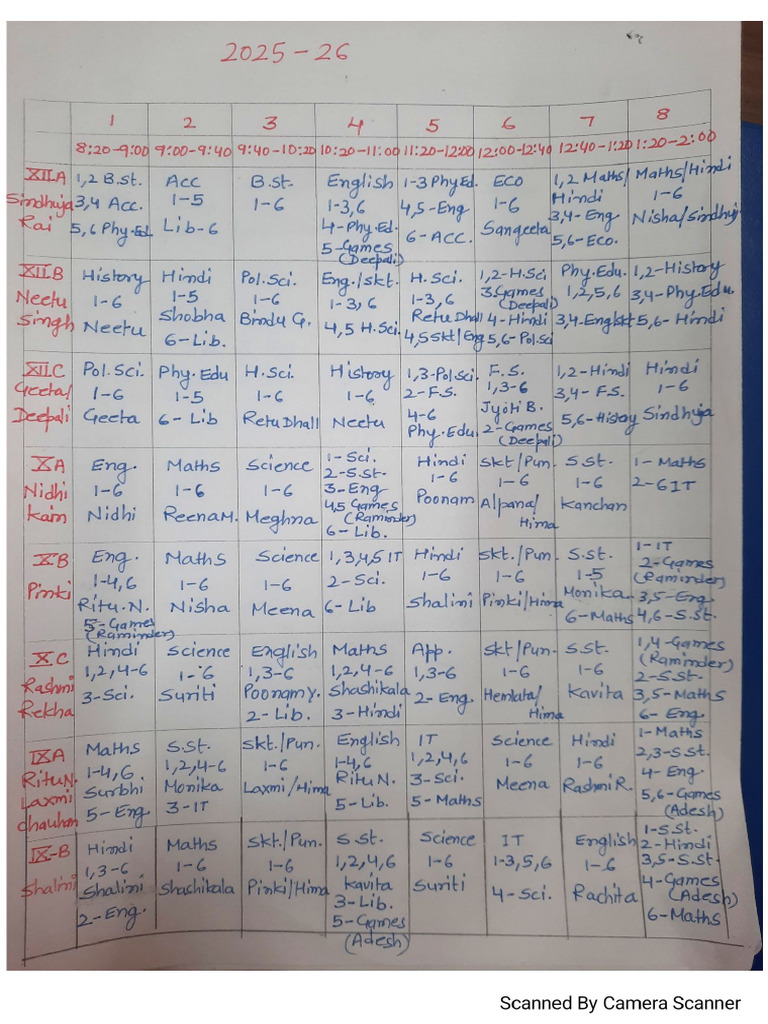 2025-26
1 2 3 4 5 6 7 8
8:20-9:00 9:00-9:40 9:40-10:20 10:20-11:00 11:20-12:00 12:00-12:40 12:40-1:20 1:20-2:00
XII.A
Sindhuja
Rai
1,2 B.st.
3,4 Acc.
5,6 Phy.Ed
Acc
1-5
Lib-6
B.st.
1-6
English
1-3,6
4-Phy.Ed.
5-Games
(Deepali)
1-3 Phy Ed.
4,5-Eng
6-Acc.
Eco
1-6
Sangeeta
1,2 Maths/
Hindi
3,4-Eng
5,6-Eco.
Maths/Hindi
1-6
Nisha/Sindhuja
XII.B
Neetu
Singh
History
1-6
Neetu
Hindi
1-5
Shobha
6-Lib.
Pol.Sci.
1-6
Bindu G.
Eng./skt.
1-3,6
4,5 H.Sci.
H.Sci.
1-3,6
Retu Dhall
4,5 Skt/Eng
1,2-H.Sci
3 Games
(Deepali)
4-Hindi
5,6-Pol.Sci
Phy.Edu.
1,2,5,6
3,4-Eng skt
1,2-History
3,4-Phy.Edu.
5,6-Hindi
XII.C
Geeta/
Deepali
Pol.Sci.
1-6
Geeta
Phy.Edu
1-5
6-Lib
H.Sci.
1-6
Retu Dhall
History
1-6
Neetu
1,3-Pol.Sci
2-F.S.
4-6
Phy.Edu.
F.S.
1,3-6
Jyoti B.
2-Games
(Deepali)
1,2-Hindi
3,4-F.S.
5,6-Histoy
Hindi
1-6
Sindhuja
XA
Nidhi
Kain
Eng.
1-6
Nidhi
Maths
1-6
Reena M.
Science
1-6
Meghna
1-Sci.
2-S.st.
3-Eng
4,5 Games
(Raminder)
6-Lib.
Hindi
1-6
Poonam
Skt/Pun.
1-6
Alpana/
Hima
S.St.
1-6
Kanchan
1-Maths
2-6 IT
XB
Pinki
Eng.
1-4,6
Ritu.N.
5-Games
(Raminder)
Maths
1-6
Nisha
Science
1-6
Meena
1,3,4,5 IT
2-Sci.
6-Lib
Hindi
1-6
Shalini
Skt./Pun.
1-6
Pinki/Hima
S.St.
1-5
Monika
6-Maths
1-IT
2-Games
(Raminder)
3,5-Eng.
4,6-S.St.
X.C
Rashmi
Rekha
Hindi
1,2,4-6
3-Sci.
Science
1-6
Suriti
English
1,3-6
Poonam Y.
2-Lib.
Maths
1,2,4-6
Shashikala
3-Hindi
App.
1,3-6
2-Eng.
Skt/Pun.
1-6
Hemlata/
Hima
S.St.
1-6
Kavita
1,4-Games
(Raminder)
2-S.st.
3,5-Maths
6-Eng.
IXA
Ritu N.
Laxmi
chauhan
Maths
1-4,6
Surbhi
5-Eng
S.St.
1,2,4-6
Monika
3-IT
Skt./Pun.
1-6
Laxmi/Hima
English
1-4,6
Ritu N.
5-Lib.
IT
1,2,4,6
3-Sci.
5-Maths
Science
1-6
Meena
Hindi
1-6
Rashmi R.
1-Maths
2,3-S.St.
4-Eng.
5,6-Games
(Adesh)
IX-B
Shalini
Hindi
1,3-6
Shalini
2-Eng.
Maths
1-6
Shachikala
Skt./Pun.
1-6
Pinki/Hima
S.st.
1,2,4,6
Kavita
3-Lib.
5-Games
(Adesh)
Science
1-6
Suriti
IT
1-3,5,6
4-Sci.
English
1-6
Rachita
1-S.St.
2-Hindi
3,5-S.St.
4-Games
(Adesh)
6-Maths
Scanned By Camera Scanner